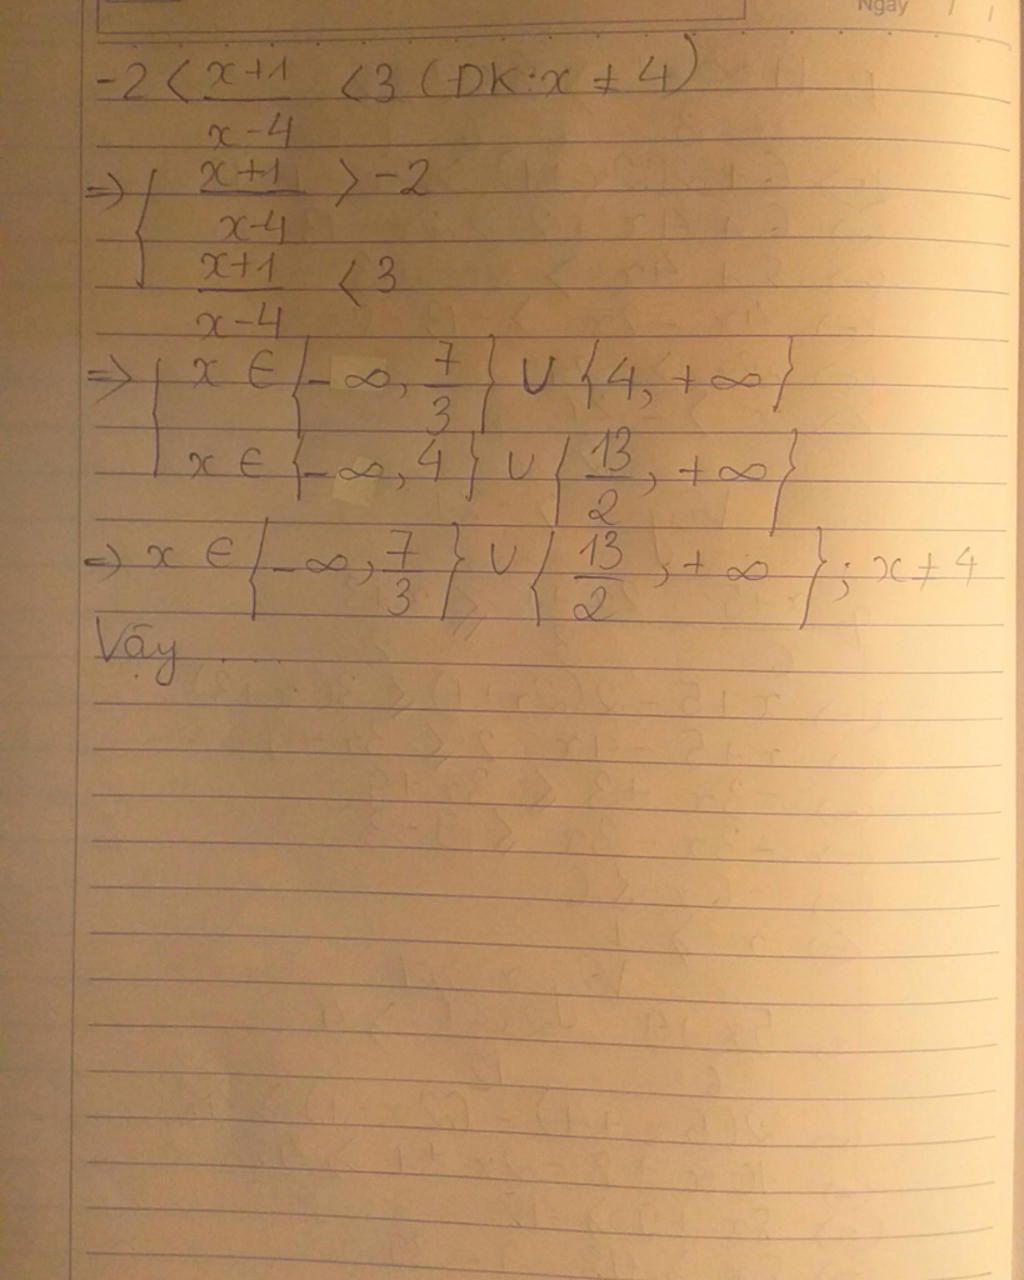 Ngày / /
-2 < \frac{x+1}{x-4} < 3 (DK: x ≠ 4)
=> { \frac{x+1}{x-4} > -2
\frac{x+1}{x-4} < 3
=> { x ∈ {-∞, \frac{7}{3}} ∪ {4, +∞}
x ∈ {-∞, 4} ∪ {\frac{13}{2}, +∞}
=> x ∈ {-∞, \frac{7}{3}} ∪ {\frac{13}{2}, +∞}; x ≠ 4
Vậy ....